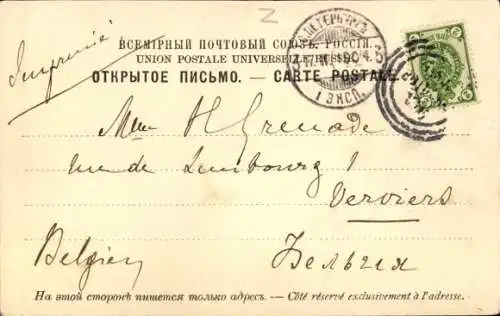 Z
С.ПЕТЕРБУРГЪ
Imprimé
ВСЕМІРНЫЙ ПОЧТОВЫЙ СОЮЗЪ. РОССІЯ.
UNION POSTALE UNIVERSELLE. RUSSIE.
ОТКРЫТОЕ ПИСЬМО. — CARTE POSTALE.
1 ЭКСП.
Mme H Grenade
rue de Limbourg 1
Verviers
Belgien
Бельгія
На этой сторонѣ пишется только адресъ. — Côté réservé exclusivement à l'adresse.